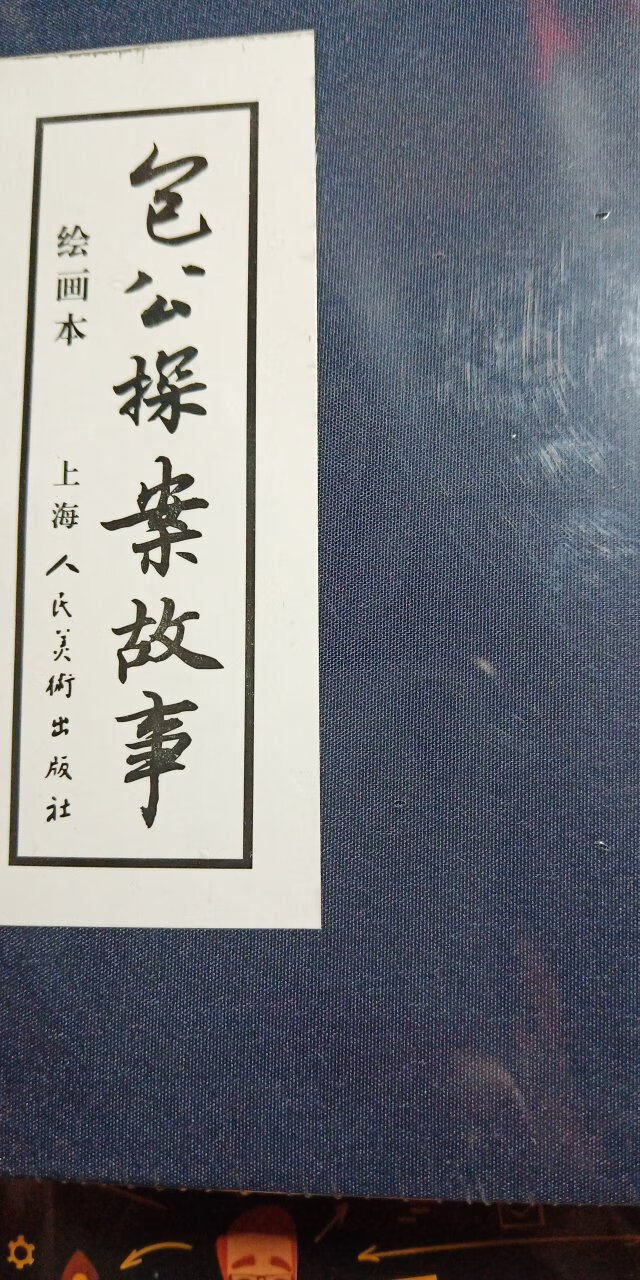 包公探案故事
绘画本
上海人民美術出版社